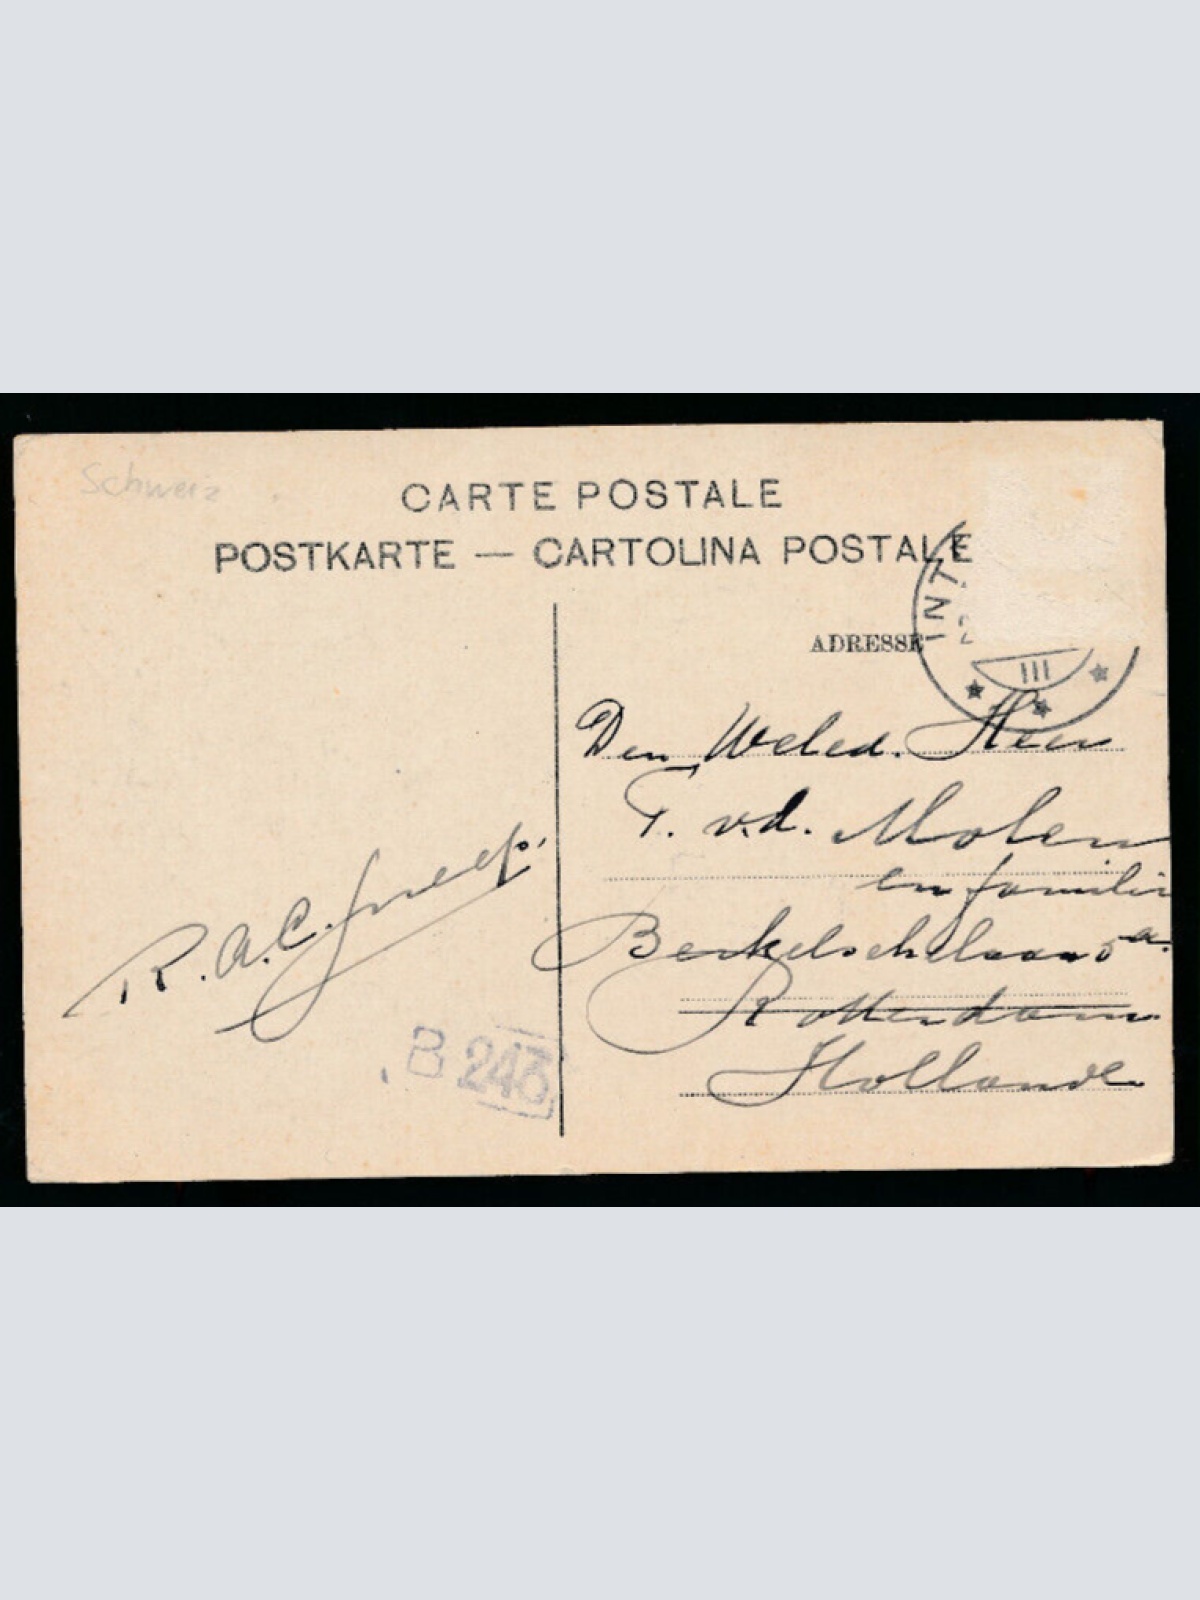 Schweiz
CARTE POSTALE
POSTKARTE — CARTOLINA POSTALE
INT
III
ADRESSE
Den Weled. Heer
T. v.d. Molen
en familie
Berkelschelaan 5a.
Rotterdam
Holland.
R. A. C.
B 243